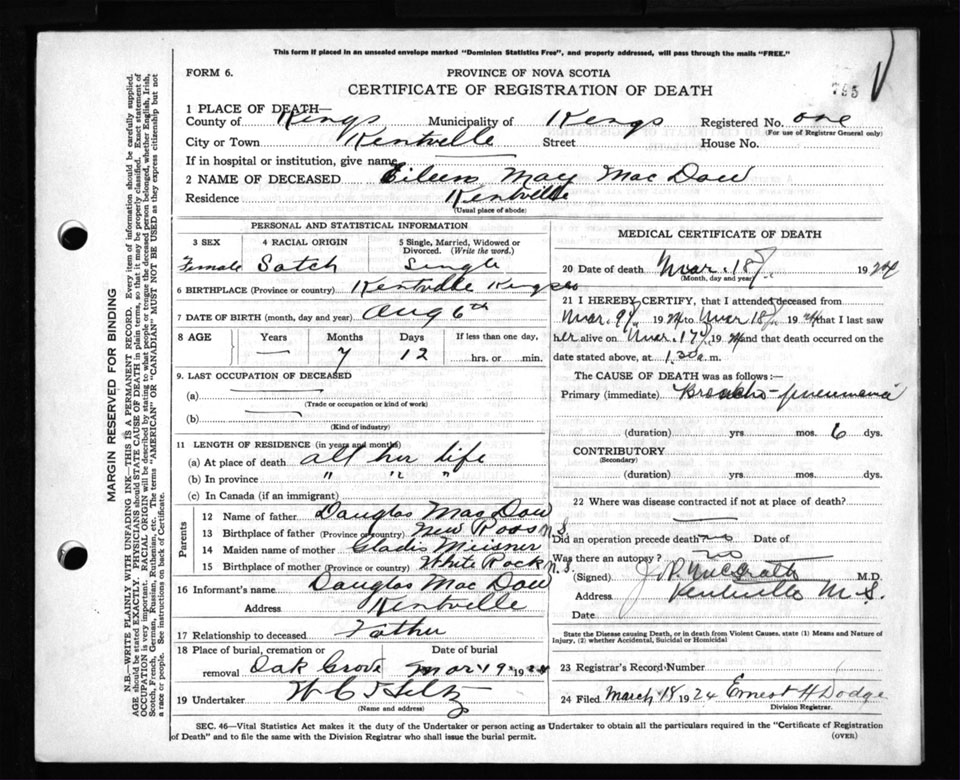 This form if placed in an unsealed envelope marked "Dominion Statistics Free", and properly addressed, will pass through the mails "FREE."
FORM 6.
PROVINCE OF NOVA SCOTIA
CERTIFICATE OF REGISTRATION OF DEATH
1 PLACE OF DEATH—
County of Kings Municipality of Kings Registered No. one
(For use of Registrar General only)
City or Town Kentville Street House No.
If in hospital or institution, give name
2 NAME OF DECEASED Eileen May Mac Dow
Residence Kentville
(Usual place of abode)
PERSONAL AND STATISTICAL INFORMATION
3 SEX 4 RACIAL ORIGIN 5 Single, Married, Widowed or Divorced. (Write the word.)
Female Sotch Single
6 BIRTHPLACE (Province or country) Kentville Kings
7 DATE OF BIRTH (month, day and year) Aug 6th
8 AGE Years Months Days If less than one day,
— 7 12 hrs. or min.
9. LAST OCCUPATION OF DECEASED
(a)
(Trade or occupation or kind of work)
(b)
(Kind of industry)
11 LENGTH OF RESIDENCE (in years and months)
(a) At place of death all her life
(b) In province " " "
(c) In Canada (if an immigrant)
Parents
12 Name of father Douglas Mac Dow
13 Birthplace of father (Province or country) New Ross N.S.
14 Maiden name of mother Gladis Meisner
15 Birthplace of mother (Province or country) White Rock N.S.
16 Informant's name Douglas Mac Dow
Address Kentville
17 Relationship to deceased Father
18 Place of burial, cremation or removal Date of burial
Oak Grove Mar 19 1924
19 Undertaker W C
(Name and address)
MEDICAL CERTIFICATE OF DEATH
20 Date of death Mar. 18 1924
(Month, day and year)
21 I HEREBY CERTIFY, that I attended deceased from
Mar. 9 1924 to Mar 18 1924 that I last saw
her alive on Mar. 17 1924 and that death occurred on the
date stated above, at 1.30 a.m.
The CAUSE OF DEATH was as follows:—
Primary (immediate) Broncho-pneumonia
(duration) yrs mos. 6 dys.
CONTRIBUTORY
(Secondary)
(duration) yrs. mos. dys.
22 Where was disease contracted if not at place of death?
Did an operation precede death no Date of
Was there an autopsy? no
(Signed) J. P. McGrath M.D.
Address Kentville N.S.
Date
State the Disease causing Death, or in death from Violent Causes, state (1) Means and Nature of
Injury, (2) whether Accidental, Suicidal or Homicidal
23 Registrar's Record Number
24 Filed March 18 1924 Ernest H Dodge
Division Registrar.
SEC. 46—Vital Statistics Act makes it the duty of the Undertaker or person acting as Undertaker to obtain all the particulars required in the "Certificate of Registration
of Death" and to file the same with the Division Registrar who shall issue the burial permit.
(OVER)
MARGIN RESERVED FOR BINDING
N.B.—WRITE PLAINLY WITH UNFADING INK—THIS IS A PERMANENT RECORD. Every item of information should be carefully supplied.
AGE should be stated EXACTLY. PHYSICIANS should STATE CAUSE OF DEATH in plain terms, so that it may be properly classified. Exact statement of
OCCUPATION is very important. RACIAL ORIGIN will be described by stating to what people or tongue the deceased person belonged, whether English, Irish,
Scotch, French, German, Russian, Ruthenian, etc. The terms "AMERICAN" or "CANADIAN" MUST NOT BE USED as they express citizenship but not
a race or people. See instructions on back of Certificate.